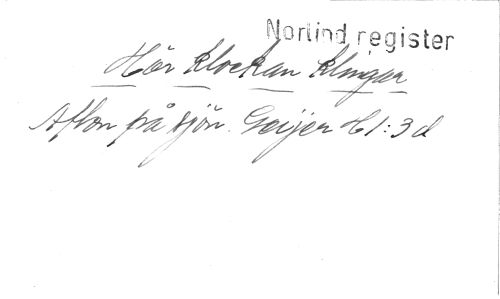 Norlind register
Hör klockan klingar
Afton på sjön. Geijer H1:3d